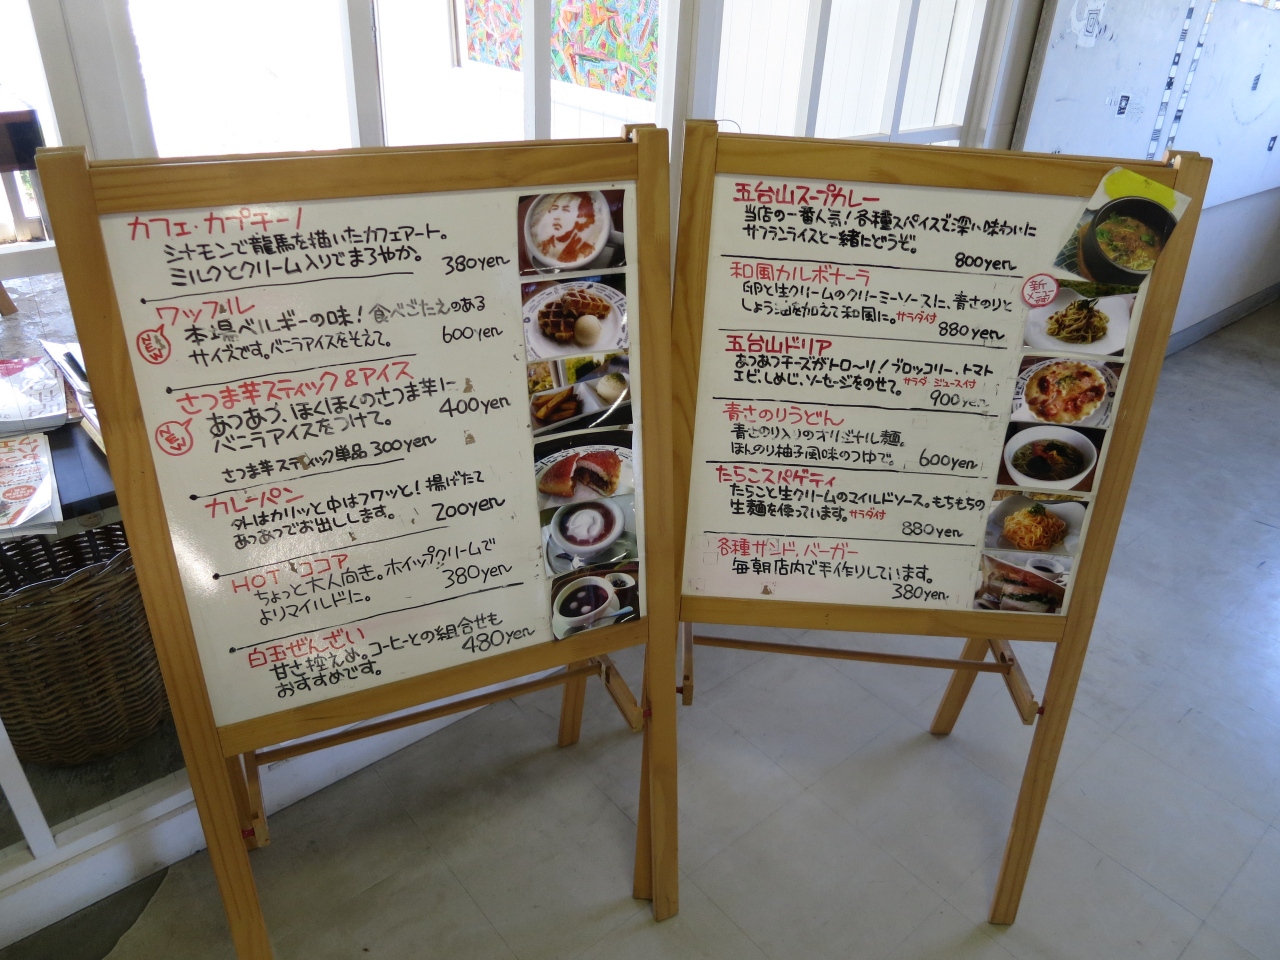 カフェ・カプチーノ
シナモンで龍馬を描いたカフェアート。
ミルクとクリーム入りでまろやか。 380yen
ワッフル
NEW
本場ベルギーの味！食べごたえのある
サイズです。バニラアイスをそえて。 600yen
さつま芋スティック&アイス
NEW
あつあつ、ほくほくのさつま芋に
バニラアイスをつけて。 400yen
さつま芋スティック単品 300yen
カレーパン
外はカリッと中はフワッと！揚げたて
あつあつでお出しします。 200yen
HOT ココア
ちょっと大人向き。ホイップクリームで
よりマイルドに。 380yen
白玉ぜんざい
甘さ控えめ。コーヒーとの組合せも
おすすめです。 480yen
五台山スープカレー
当店の一番人気！各種スパイスで深い味わいに
サフランライスと一緒にどうぞ。 800yen
和風カルボナーラ
卵と生クリームのクリーミーソースに、青さのりと
しょう油を加えて和風に。サラダ付 880yen
五台山ドリア
あつあつチーズがトロ〜リ！ブロッコリー、トマト
エビ、しめじ、ソーセージをのせて。サラダ・ジュース付 900yen
青さのりうどん
青さのり入りのオリジナル麺。
ほんのり柚子風味のつゆで。 600yen
たらこスパゲティ
たらこと生クリームのマイルドソース。もちもちの
生麺を使っています。サラダ付 880yen
各種サンド、バーガー
毎朝店内で手作りしています。 380yen